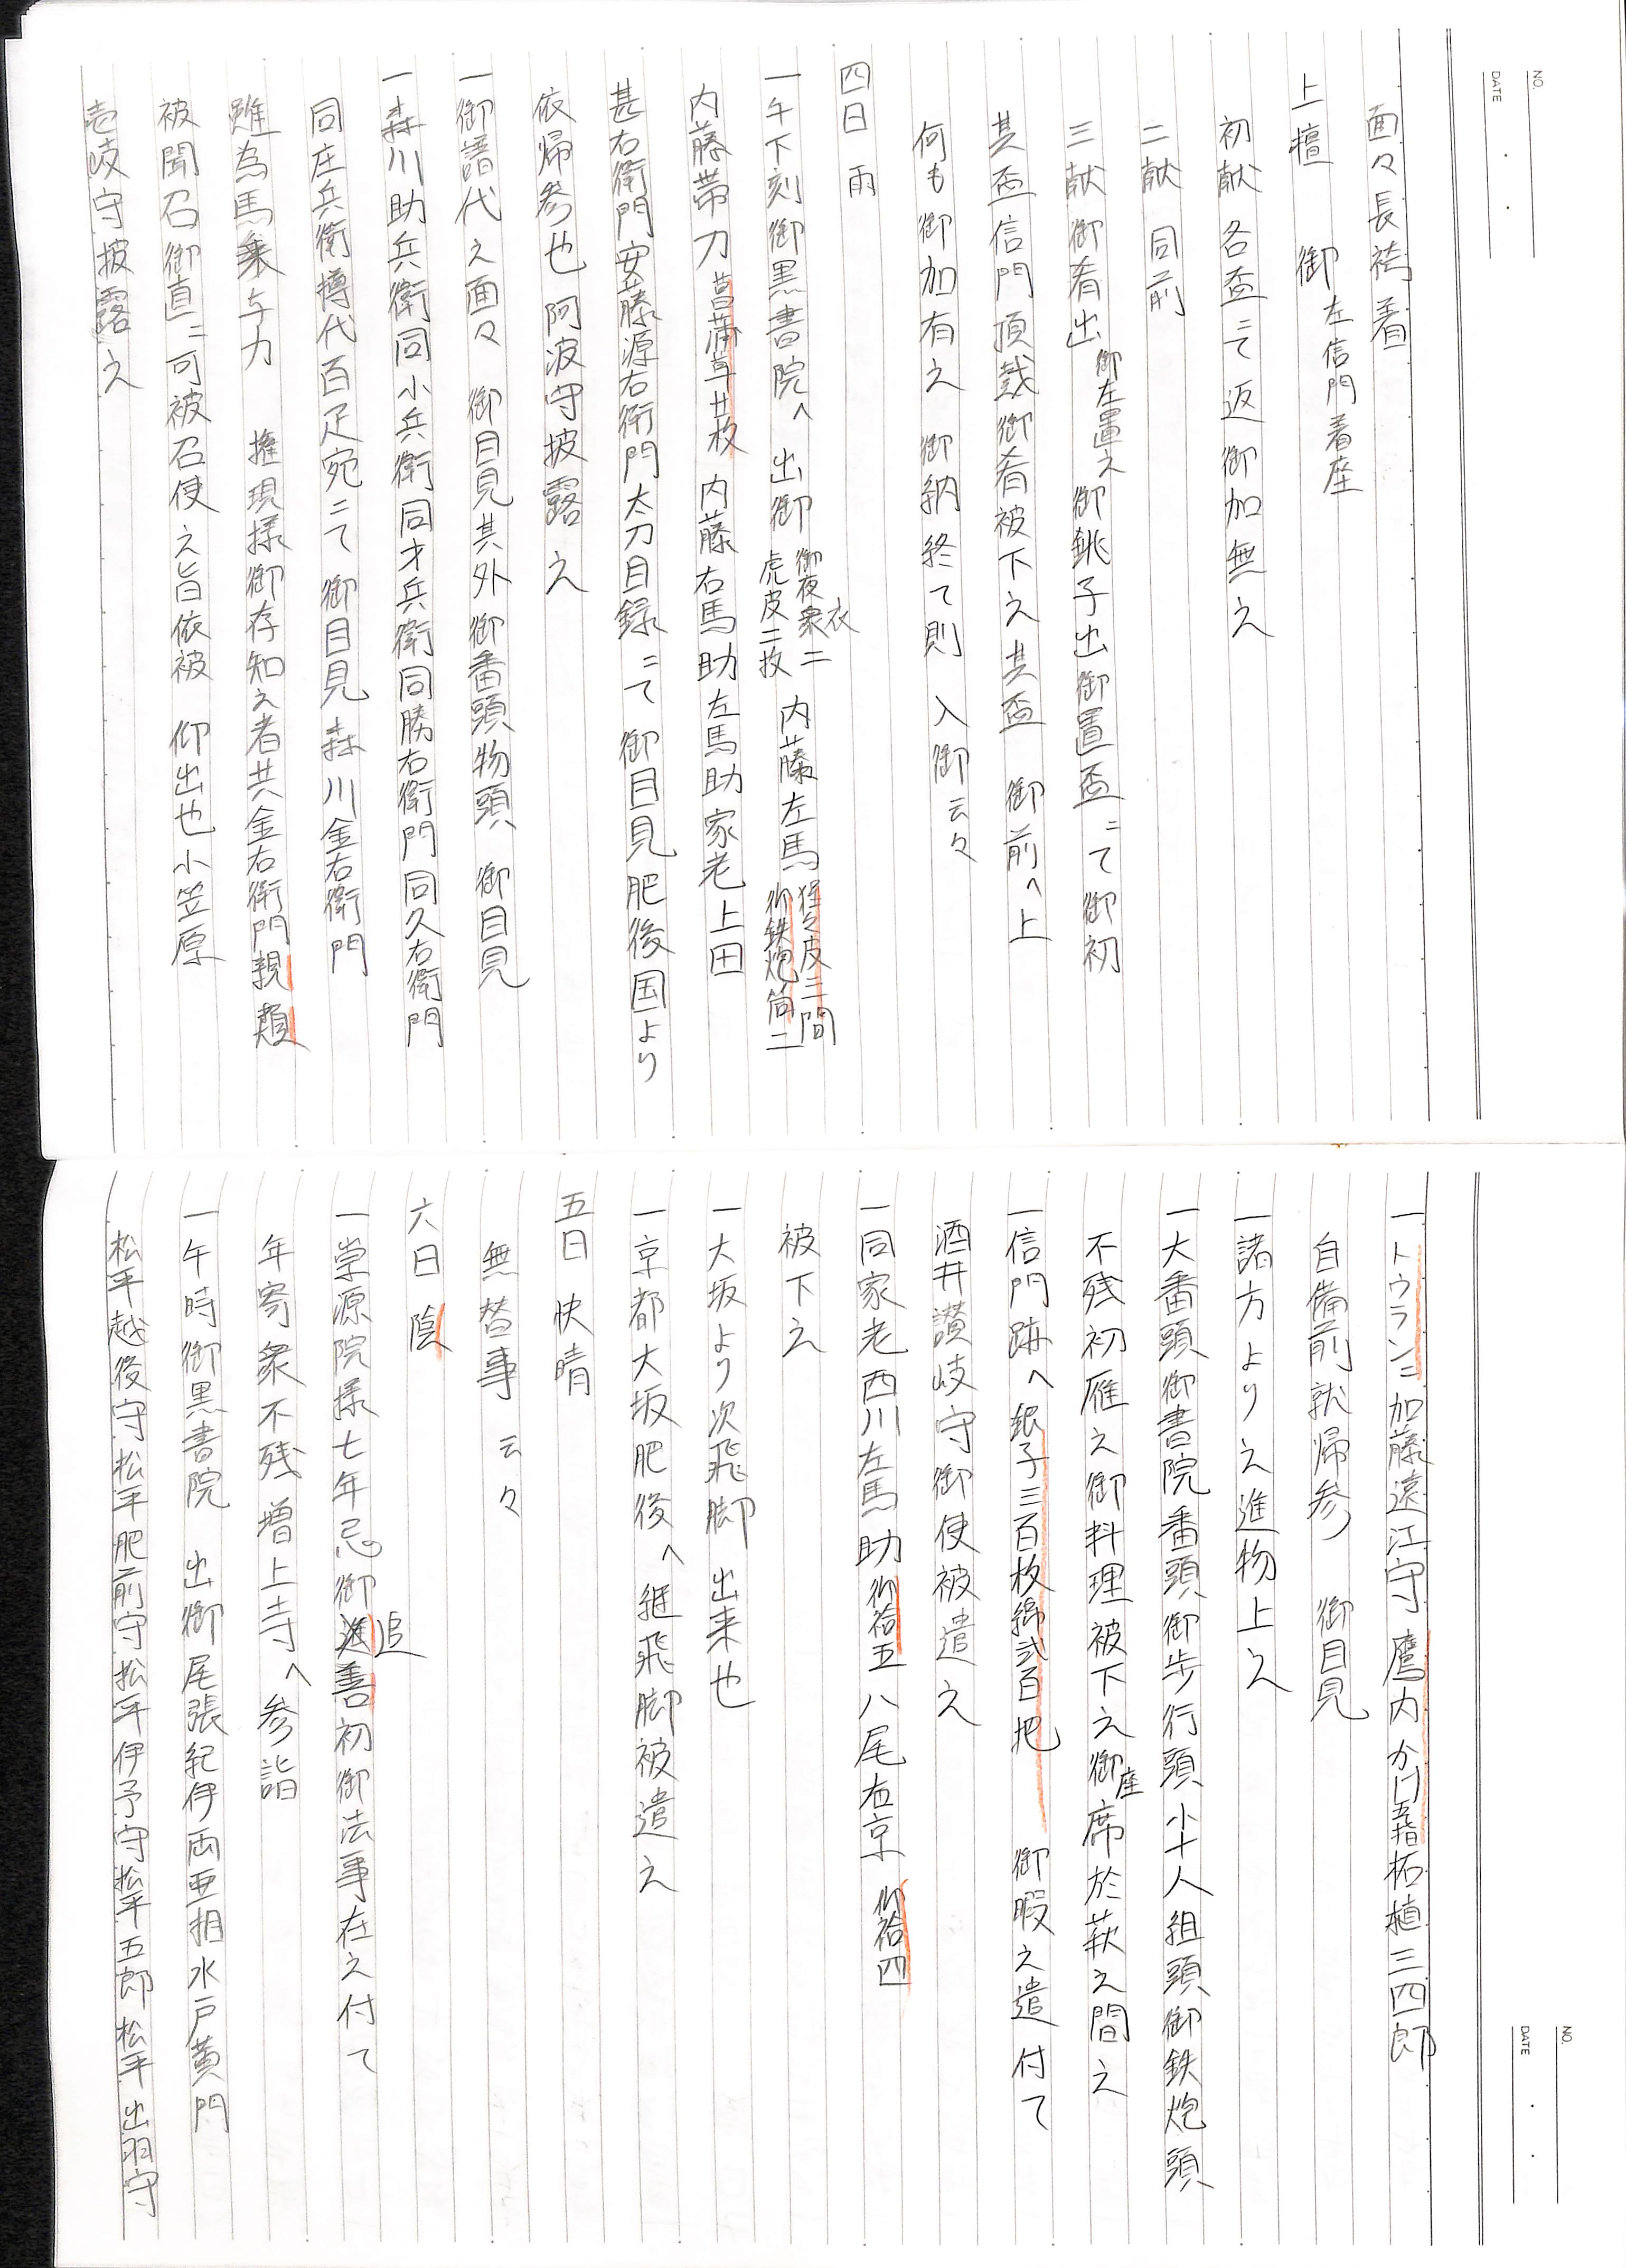 NO.
DATE
面々長袴着
上檀 御左信門着座
初献各盃ニて返御加無之
二献同前
三献御肴出御左置之御銚子出御置盃ニて御初
其盃信門頂戴御肴被下之其盃 御前へ上
何も御加有之 御納終て則 入御云々
四日 雨
一午下刻御黒書院へ 出御 御夜衆衣二 虎皮二枚 内藤左馬 猩々皮三間 御鉄炮筒二
内藤帯刀 菖蒲草廿枚 内藤右馬助左馬助家老上田
甚右衛門安藤源右衛門太刀目録ニて御目見肥後国より
依帰参也阿波守披露之
一御譜代之面々 御目見其外御番頭物頭 御目見
一森川助兵衛同小兵衛同才兵衛同勝右衛門同久右衛門
同庄兵衛樽代百疋宛ニて御目見森川金右衛門
雖為馬乗与力 権現様御存知之者共金右衛門親類
被聞召御直ニ可被召使之旨依被 仰出也小笠原
壱岐守披露之
NO.
DATE
一トウランニ加藤遠江守 鷹内かけ五指柘植三四郎
自備前就帰参 御目見
一諸方よりえ進物上之
一大番頭御書院番頭御歩行頭小十人組頭御鉄炮頭
不残初雁之御料理被下之御座席於萩之間之
一信門跡へ銀子三百枚綿弐百把 御暇之遣付て
酒井讃岐守御使被遣之
一同家老西川左馬助御袷五八尾右京 御袷四
被下之
一大坂より次飛脚出来也
一京都大坂肥後へ継飛脚被遣之
五日 快晴
無替事云々
六日 陰
一崇源院様七年忌御進追善初御法事在之付て
年寄衆不残増上寺へ参詣
一午時御黒書院 出御尾張紀伊両亜相水戸黄門
松平越後守松平肥前守松平伊予守松平五郎松平出羽守